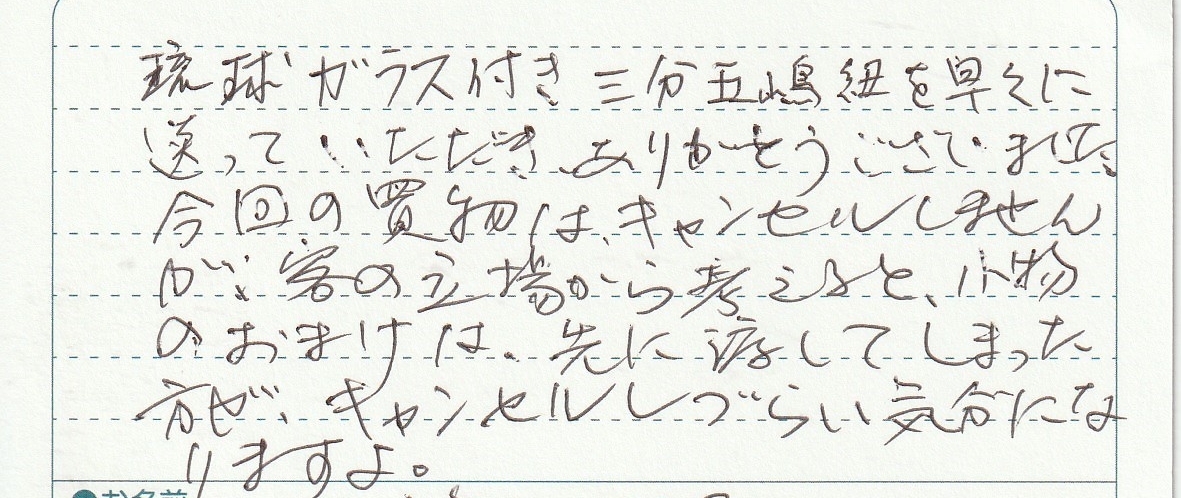 琉球ガラス付き三分五嶋紐を早々に
送っていただき、ありがとうございました。
今回の買物は、キャンセルしません
が、客の立場から考えると、小物
のおまけは、先に渡してしまった
方が、キャンセルしづらい気分にな
りますよ。
●お名前